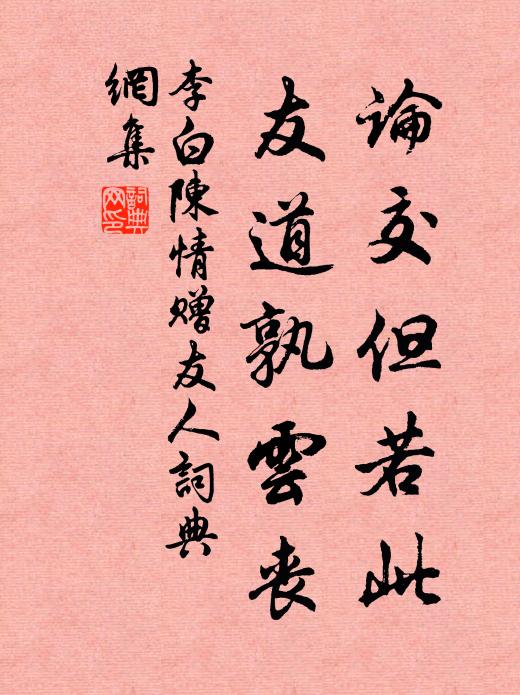 論交但若此
友道孰雲喪
李白陳情贈友人詞典
網集
詞典
网印